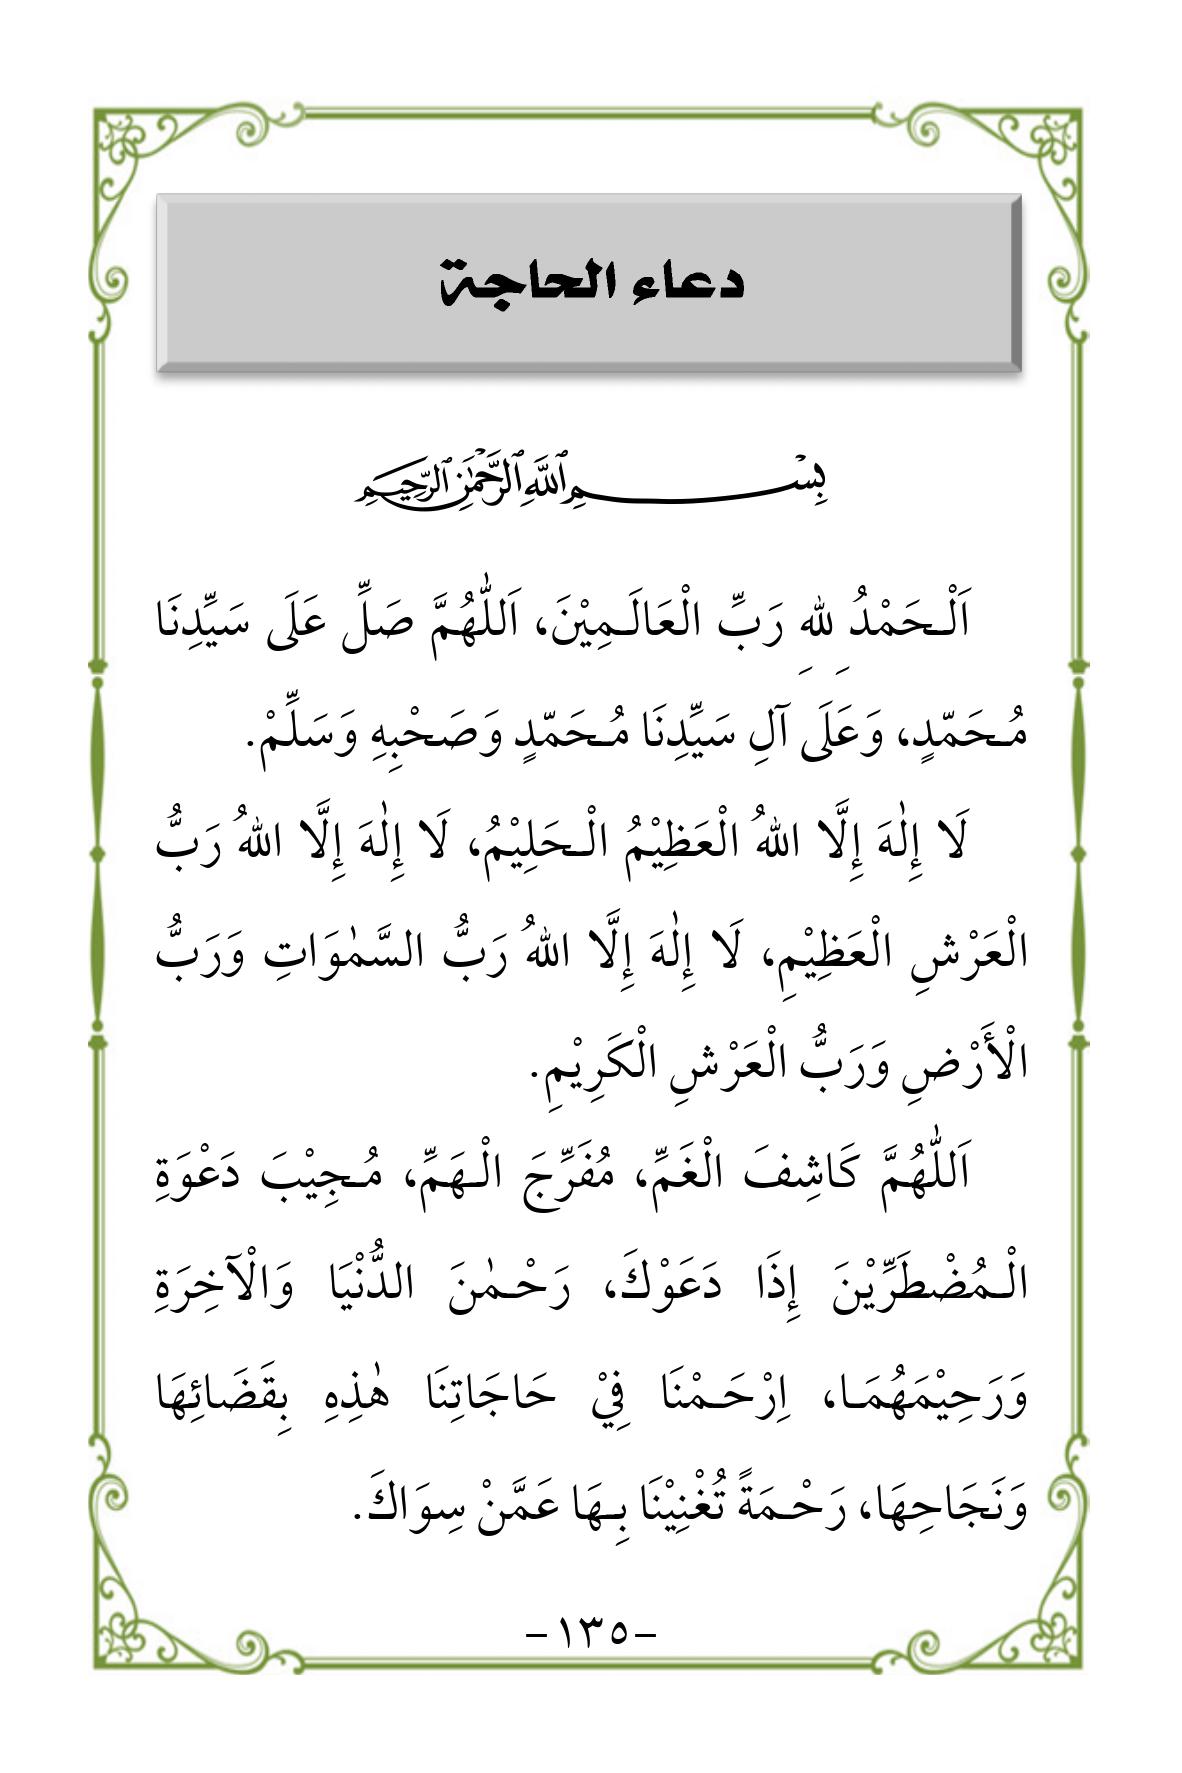 دعاء الحاجة
بِسْمِ اللَّهِ الرَّحْمٰنِ الرَّحِيمِ
اَلْـحَمْدُ لِلهِ رَبِّ الْعَالَـمِيْنَ، اَللّٰهُمَّ صَلِّ عَلَى سَيِّدِنَا
مُـحَمّدٍ، وَعَلَى آلِ سَيِّدِنَا مُـحَمّدٍ وَصَحْبِهِ وَسَلِّمْ.
لَا إِلٰهَ إِلَّا اللهُ الْعَظِيْمُ الْـحَلِيْمُ، لَا إِلٰهَ إِلَّا اللهُ رَبُّ
الْعَرْشِ الْعَظِيْمِ، لَا إِلٰهَ إِلَّا اللهُ رَبُّ السَّمٰوَاتِ وَرَبُّ
الْأَرْضِ وَرَبُّ الْعَرْشِ الْكَرِيْمِ.
اَللّٰهُمَّ كَاشِفَ الْغَمِّ، مُفَرِّجَ الْـهَمِّ، مُـجِيْبَ دَعْوَةِ
الْـمُضْطَرِّيْنَ إِذَا دَعَوْكَ، رَحْـمٰنَ الدُّنْيَا وَالْآخِرَةِ
وَرَحِيْمَهُمَـا، اِرْحَـمْنَا فِيْ حَاجَاتِنَا هٰذِهِ بِقَضَائِهَا
وَنَجَاحِهَا، رَحْـمَةً تُغْنِيْنَا بِـهَا عَمَّنْ سِوَاكَ.
-١٣٥-